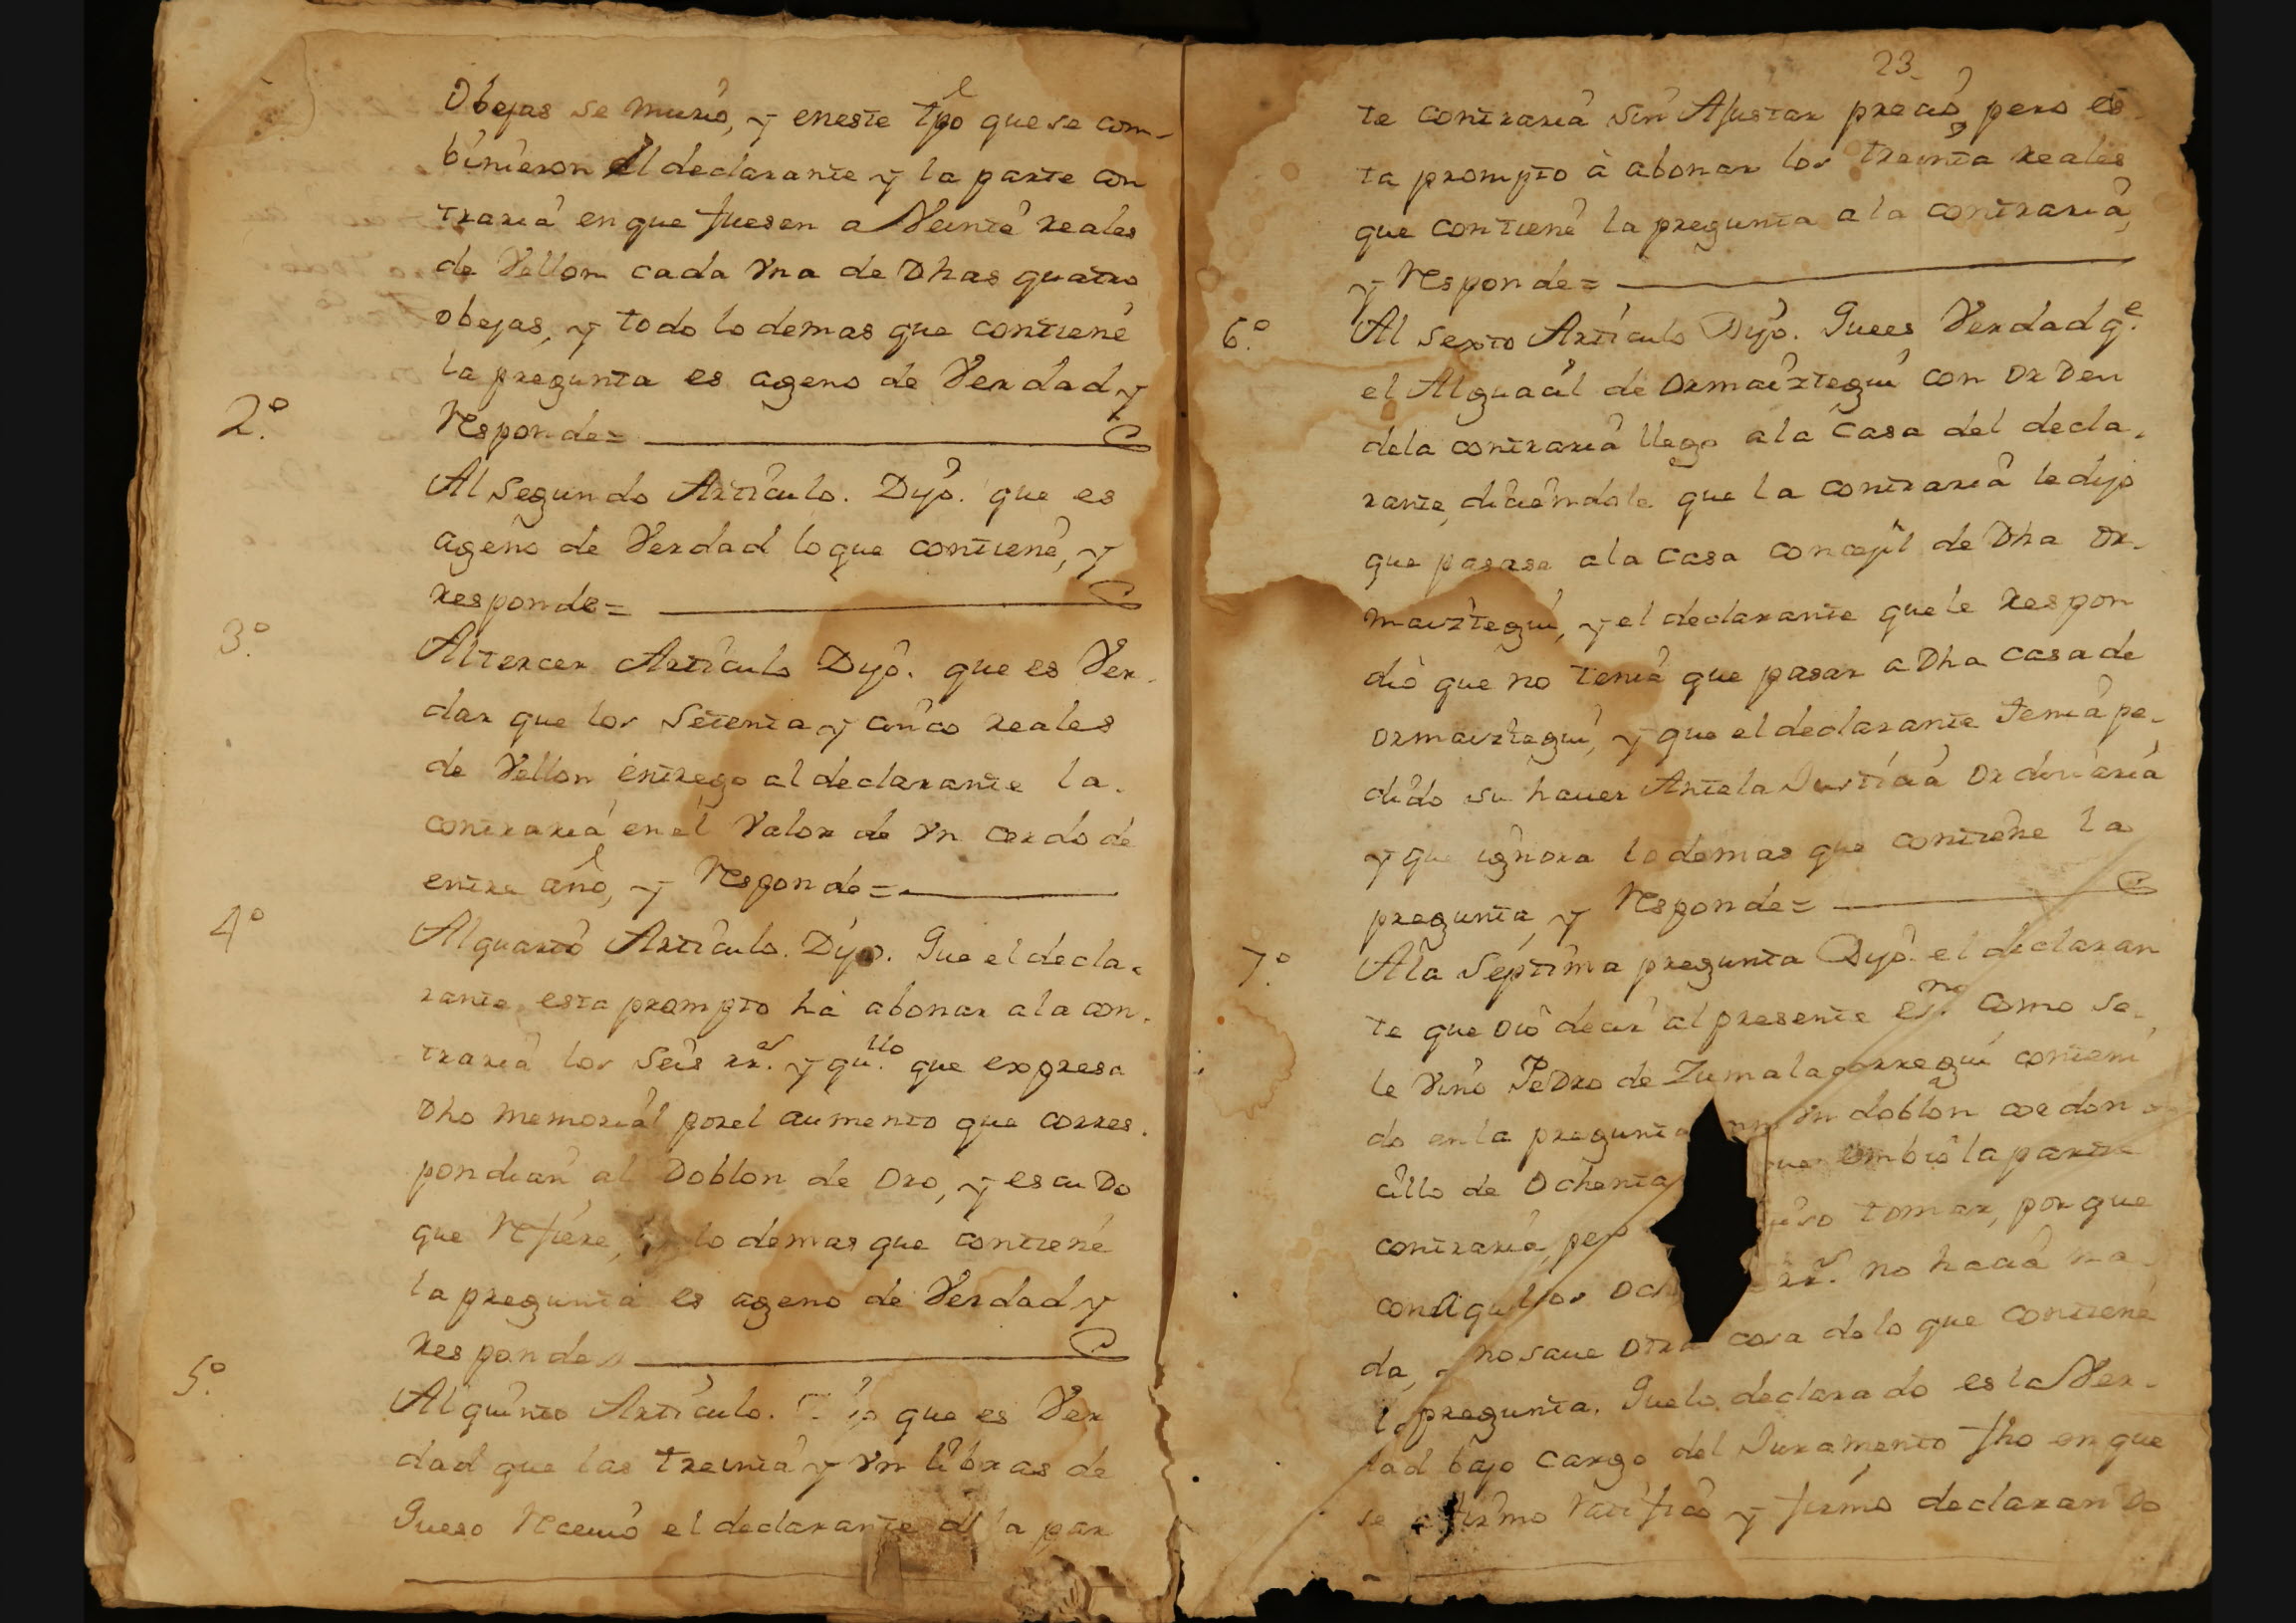 Obejas se murió, y eneste tpo que se com-
binieron el declarante y la parte con
traria en que fuesen a Veinte reales
de Vellon cada Vna de Dhas quatro
obejas, y todo lo demas que contiene
la pregunta es ageno de Verdad y
2.º Responde=
Al Segundo Articulo. Dijo. que es
ageno de Verdad lo que contiene, y
responde=
3.º Al tercer Articulo Dijo. que es Ver-
dar que los Setenta y cinco reales
de Vellon entrego al declarante la
contraria en el Valor de Vn cerdo de
entre año, y Responde=
4º Al quarto Articulo. Dijo. Que el decla-
rante esta prompto ha abonar a la con-
traria los Seis rr.s y qu.llo que expresa
Dho memorial por el aumento que corres-
pondian al Doblon de Oro, y escuDo
que Refiere, y lo demas que contiene
la pregunta es ageno de Verdad y
responde=
5.º Al quinto Articulo. que es Ver
dad que las treinta y Vn libras de
Queso Reciuio el declarante de la par
23
te contraria sin Ajustar precio, pero es-
ta prompto à abonar los treinta reales
que contiene la pregunta a la contraria,
y Responde=
6.º Al sexto Articulo Dijo. Que es Verdad q.e
el Alguacil de Ormaiztegui con orDen
de la contraria llego a la Casa del decla-
rante, diciendole que la contraria le dijo
que pasase a la Casa concejil de Dha Or-
maiztegui, y el declarante que le respon
diò que no tenia que pasar a Dha casa de
Ormaiztegui, y que el declarante tenia pe-
dido su hauer Ante la Justicia Ordinaria
y que ignora lo demas que contiene la
pregunta, y Responde=
7.º A la Septima pregunta Dijo. el declaran
te que Diò decir al presente es.no como se-
le Vino PeDro de Zumalacorregui conteni
do en la pregunta Vn doblon cordon
cillo de Ochenta que embiò la parte
contraria, pero tomar, porque
con aquellos rr.s no hacia na-
da, y no saue otra cosa de lo que contiene
la pregunta. Que lo declarado es la Ver-
dad bajo cargo del Juramento fho en que
se afirmo ratificò y firmò declaranDo